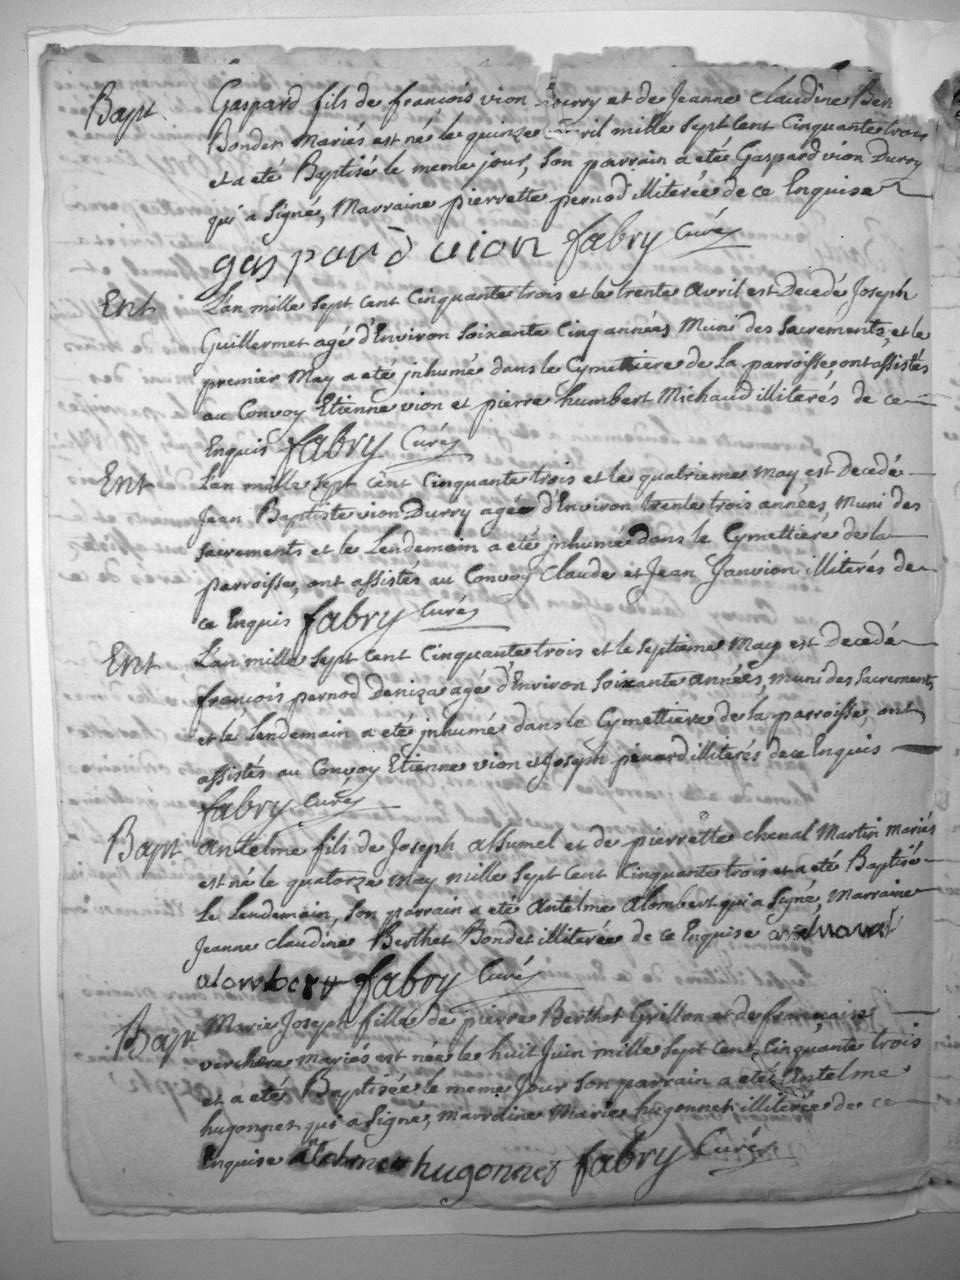 Bapt Gaspard fils de francois vion Durry et de Jeanne Claudine Ber
Bondet Mariés est né le quinze avril mille sept cent cinquante trois
et a été Baptisé le meme jour, son parrain a été Gaspard vion Durry
qui a signé, Marraine pierrette pernod illiterée de ce Enquise
gaspard vion fabry Curé
Ent L'an mille sept cent cinquante trois et le trente avril est Decedé Joseph
Guillermet agé d'Environ soixante cinq années Muni des sacrements, et le
premier May a eté inhumé dans le Cymettiere de La parroisse, ont assistés
au Convoy Etienne vion et pierre humbert Michaud illiterés de ce
Enquis fabry Curé
Ent L'an mille sept cent cinquante trois et le quatrieme may est decedé
Jean Baptiste vion Durry agée d'Environ trente trois années, muni des
sacrements et le Lendemain a eté inhumé dans le Cymettiere de la
parroisse, ont assistés au Convoy Claude et Jean Janvion illiterés de
ce Enquis fabry Curé
Ent L'an mille sept cent cinquante trois et le septieme May est decedé
francois pernod Denize agé d'Environ soixante années, muni des sacrements
et le Lendemain a eté inhumé dans le Cymettiere de la parroisse, ont
assistés au Convoy Etienne vion et Joseph penard illiterés de ce Enquis
fabry Curé
Bapt antelme fils de Joseph assumel et de pierrette chenal Martin mariés
est né le quatorze May mille sept cent cinquante trois et a eté Baptisé
Le Lendemain, son parrain a eté Antelme alombert qui a signé, Marraine
Jeanne claudine Berthet Bondet illiterée de ce Enquise
alombert fabry Curé
Bapt Marie Joseph fille de pierre Berthet Grillon et de francoise
verchere mariés est née le huit Juin mille sept cent cinquante trois
et a eté Baptisée le meme Jour son parrain a eté Antelme
hugonnet qui a signé, marraine Marie hugonnet illiterée de ce
Enquise hugonnet fabry Curé